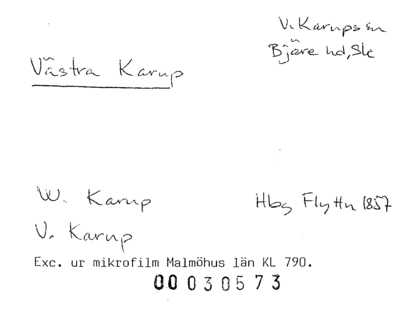 V. Karups sn
Bjäre hd, Sk
Västra Karup
W. Karup
Hbg Flyttn 1857
V. Karup
Exc. ur mikrofilm Malmöhus län KL 790.
00 030573